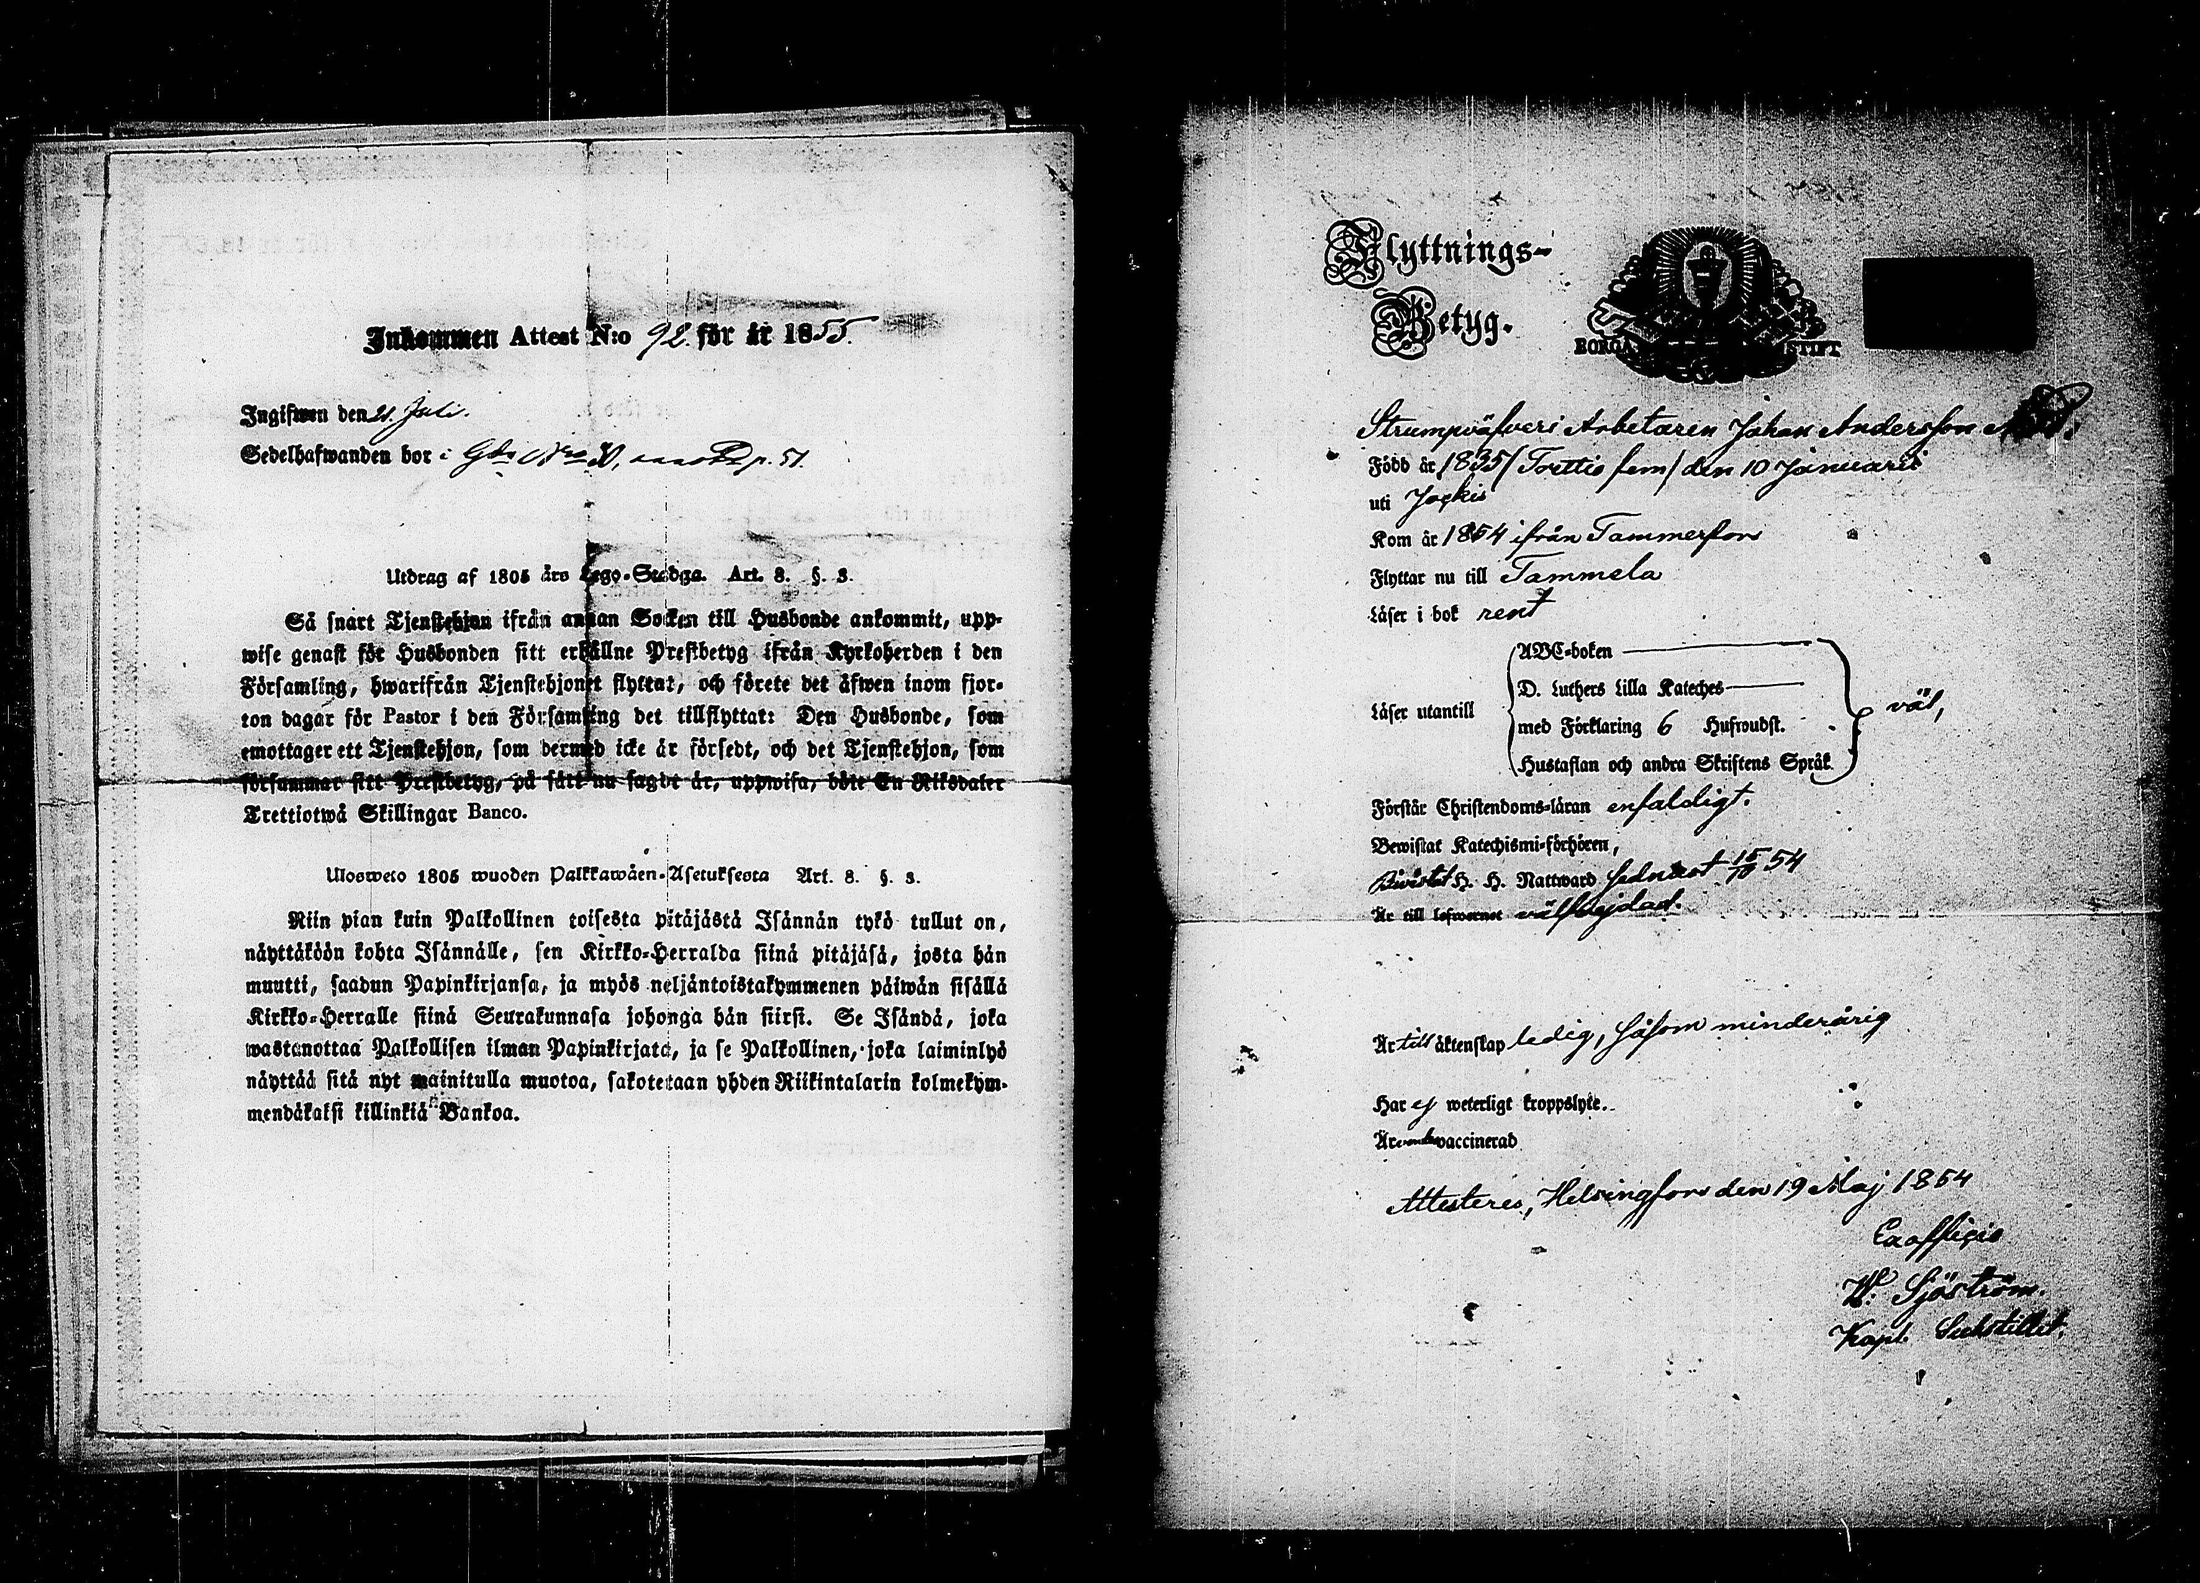 Inkommen Attest N:o 92. för år 1855.
Ingifwen den 21. Juli.
Sedelhafwanden bor i Gds Nro 30, p. 51.
Utdrag af 1805 års Lego-Stadga. Art. 8. §. 3.
Så snart Tjenstehjon ifrån annan Socken till Husbonde ankommit, upp-
wise genast för Husbonden sitt erhållne Prestbetyg ifrån Kyrkoherden i den
Församling, hwarifrån Tjenstehjonet flyttat, och förete det äfwen inom fjor-
ton dagar för Pastor i den Församling det tillflyttat: Den Husbonde, som
emottager ett Tjenstehjon, som dermed icke är försedt, och det Tjenstehjon, som
försummar sitt Prestbetyg, på sätt nu sagdt är, uppwisa, böte En Riksdaler
Trettiotwå Skillingar Banco.
Ulosweto 1805 wuoden Palkkawäen-Asetuksesta Art. 8. §. 3.
Niin pian kuin Palkollinen toisesta pitäjästä Isännän tykö tullut on,
näyttäköön kohta Isännälle, sen Kirkko-Herralda siinä pitäjäsä, josta hän
muutti, saadun Papinkirjansa, ja myös neljäntoistakymmenen päiwän sisällä
Kirkko-Herralle siinä Seurakunnasa johonga hän siirsi. Se Isändä, joka
wastanottaa Palkollisen ilman Papinkirjata, ja se Palkollinen, joka laiminlyö
näyttää sitä nyt mainitulla muotoa, sakotetaan yhden Riikintalarin kolmekym-
mendäkaksi killinkiä Bankoa.
Flyttnings-
Betyg.
BORGÅ STIFT
Strumpväfveri Arbetaren Johan Andersson
Född år 1835/Trettio fem/ den 10 Januarii
uti Jockis
Kom år 1854 ifrån Tammerfors
Flyttar nu till Tammela
Läser i bok rent
Läser utantill
ABC-boken
D. Luthers Lilla Kateches
med Förklaring 6 Hufwudst.
Hustaflan och andra Skriftens Språk
väl,
Förstår Christendoms-läran enfaldigt.
Bewistat Katechismi-förhören,
Bewistat H. H. Nattward sednast 54
Är till lefwernet välfrejdad.
Är till äktenskap ledig, såsom minderårig
Har ej weterligt kroppslyte.
Är vaccinerad
Attesteres, Helsingfors den 19 Maj 1854
Ex officio
W. Sjöström.
Kapl. Substitut.